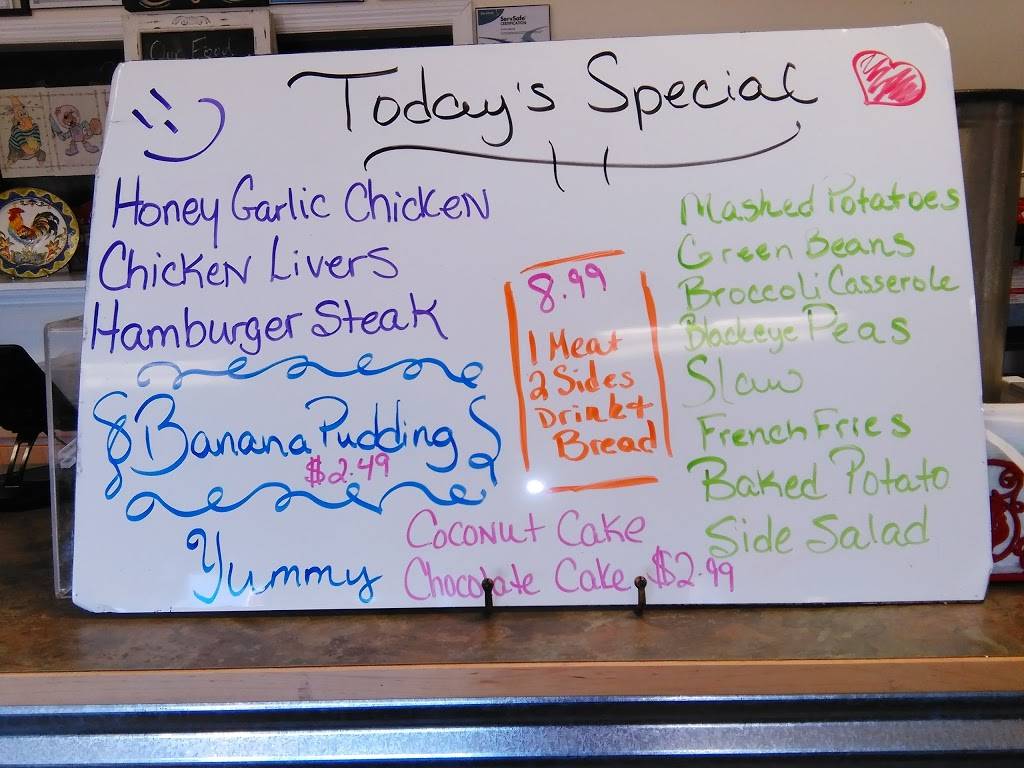 Our Food
ServSafe
CERTIFICATION
Today's Special
Honey Garlic Chicken
Chicken Livers
Hamburger Steak
Banana Pudding
$2.49
Yummy
8.99
1 Meat
2 Sides
Drink +
Bread
Coconut Cake
Chocolate Cake $2.99
Mashed Potatoes
Green Beans
Broccoli Casserole
Blackeye Peas
Slaw
French Fries
Baked Potato
Side Salad